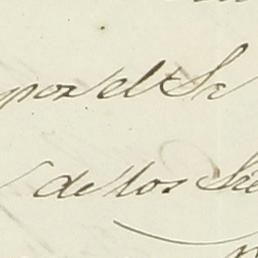 por el Sr
de los